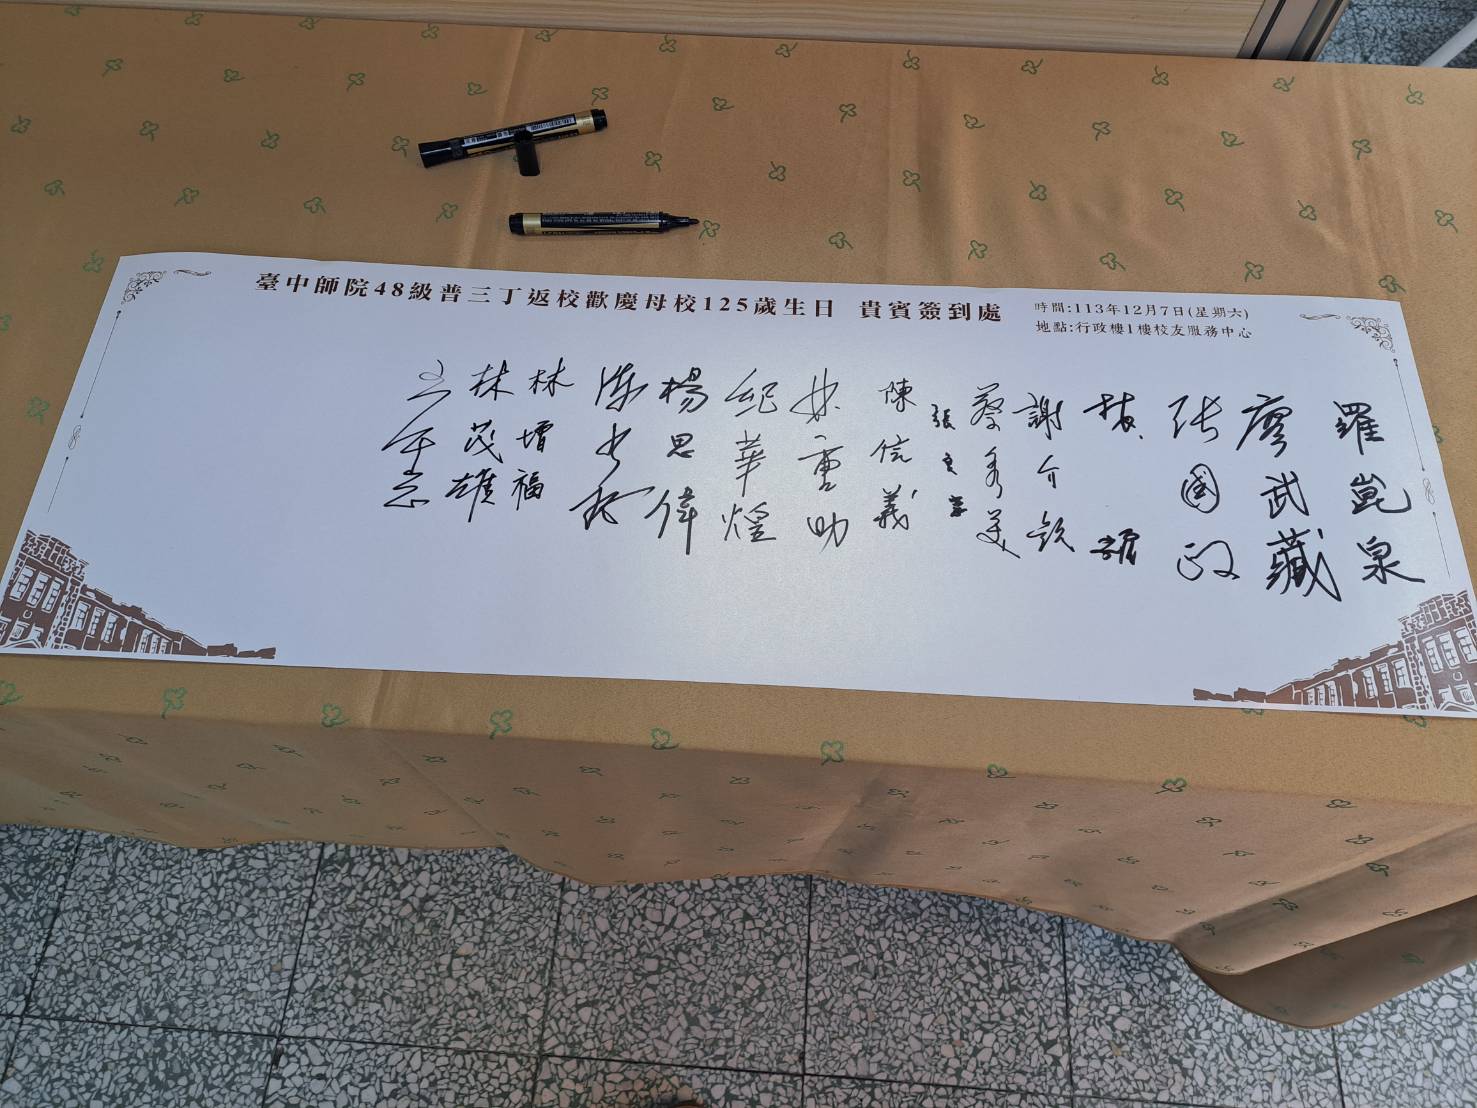 臺中師院48級普三丁返校歡慶母校125歲生日 貴賓簽到處
時間:113年12月7日(星期六)
地點:行政樓1樓校友服務中心
羅崑泉
廖武藏
張國政
謝介欽
蔡秀美
陳信義
林重助
紀華煌
楊思偉
林增福
林茂雄